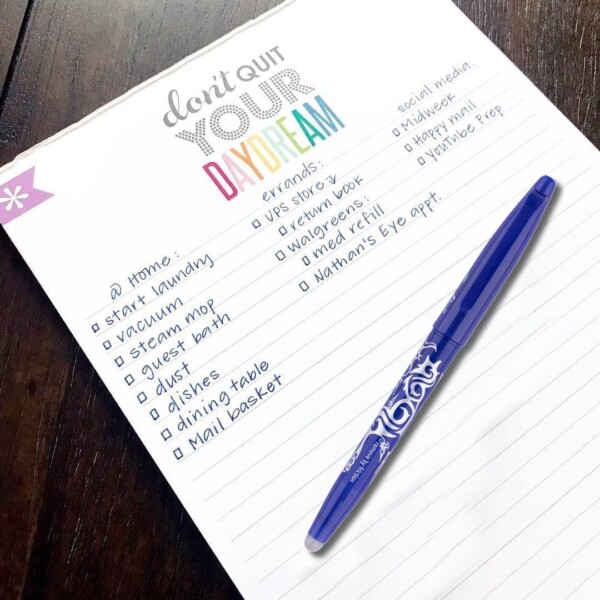 don't QUIT
YOUR
DAYDREAM
@ Home:
□ start laundry
□ vacuum
□ steam mop
□ guest bath
□ dust
□ dishes
□ dining table
□ Mail basket
errands:
□ UPS store↴
□ return book
□ Walgreens:
□ med refill
□ Nathan's Eye appt.
social media:
□ Midweek
□ Happy mail
□ YouTube Prep
remove by friction